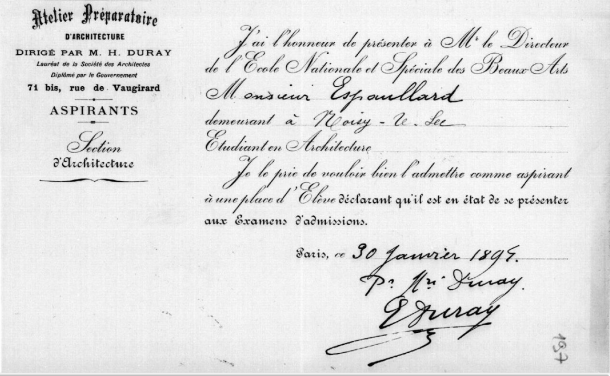 Atelier Préparatoire
D'ARCHITECTURE
DIRIGÉ PAR M. H. DURAY
Lauréat de la Société des Architectes
Diplômé par le Gouvernement
71 bis, rue de Vaugirard
ASPIRANTS
Section
d'Architecture
J'ai l'honneur de présenter à Mr le Directeur
de l'Ecole Nationale et Spéciale des Beaux-Arts
Monsieur Espaullard
demeurant à Noisy-le-Sec
Etudiant en Architecture
Je le prie de vouloir bien l'admettre comme aspirant
à une place d'Elève déclarant qu'il est en état de se présenter
aux Examens d'admissions.
Paris, ce 30 Janvier 189
Pr Hri Duray.
E Duray
197